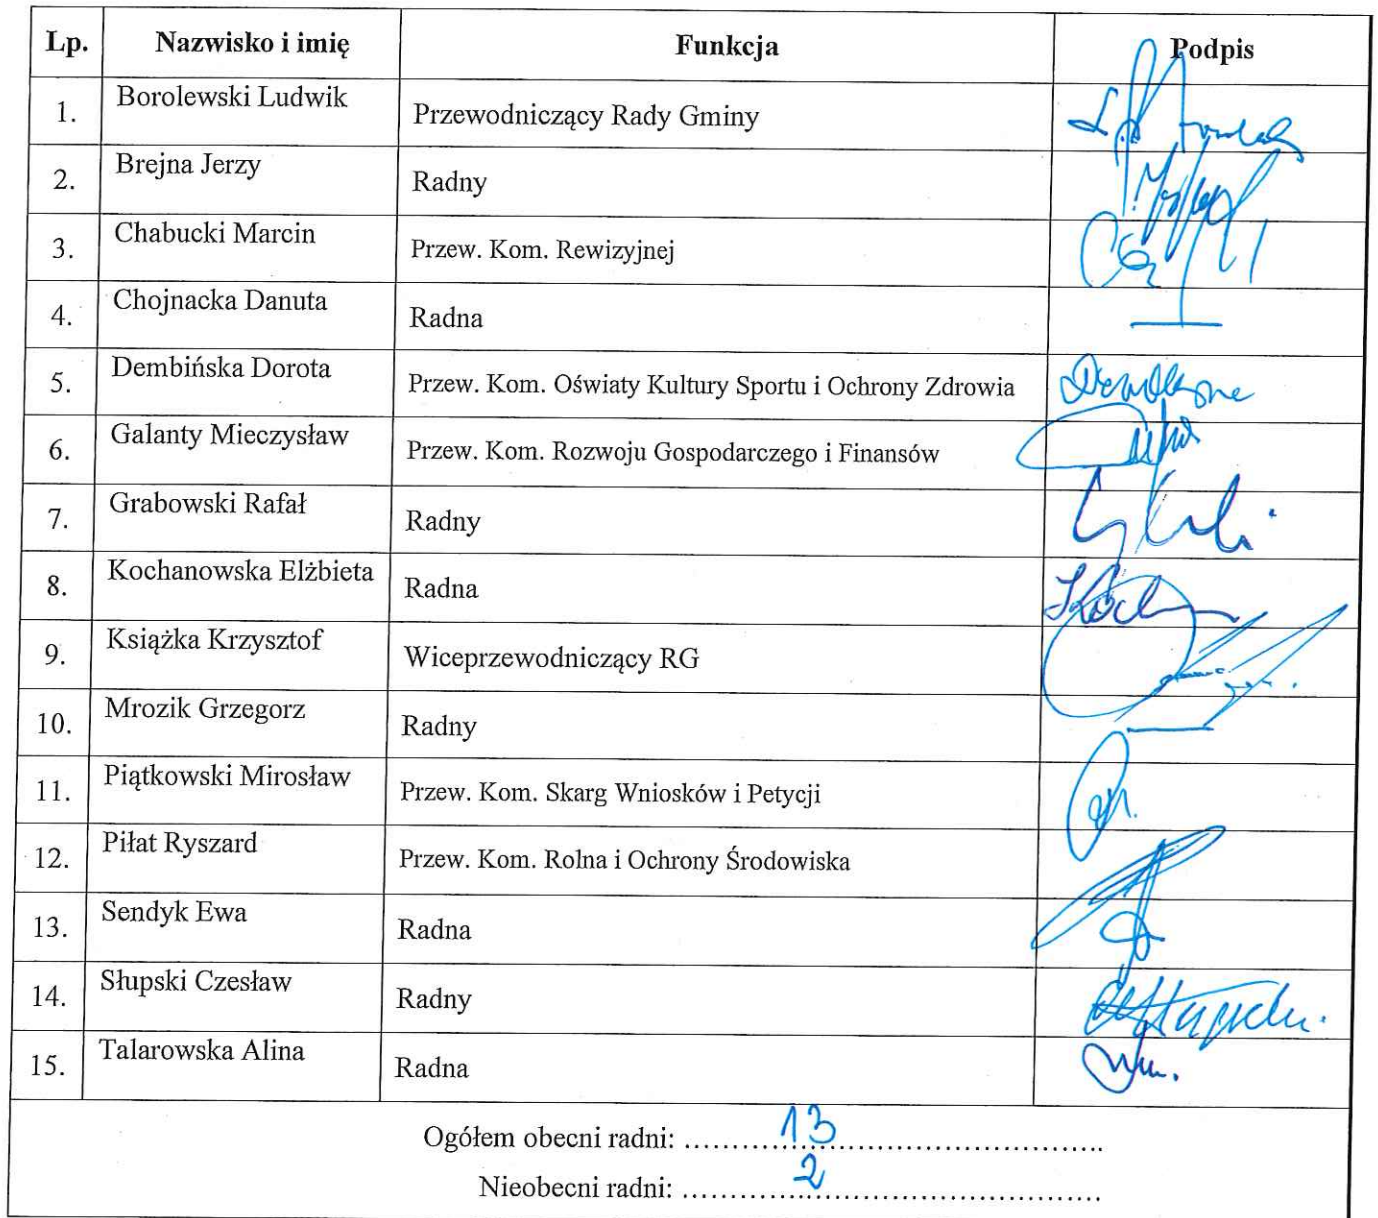 Lp. Nazwisko i imię Funkcja Podpis
1. Borolewski Ludwik Przewodniczący Rady Gminy
2. Brejna Jerzy Radny
3. Chabucki Marcin Przew. Kom. Rewizyjnej
4. Chojnacka Danuta Radna —
5. Dembińska Dorota Przew. Kom. Oświaty Kultury Sportu i Ochrony Zdrowia
6. Galanty Mieczysław Przew. Kom. Rozwoju Gospodarczego i Finansów
7. Grabowski Rafał Radny
8. Kochanowska Elżbieta Radna
9. Książka Krzysztof Wiceprzewodniczący RG
10. Mrozik Grzegorz Radny —
11. Piątkowski Mirosław Przew. Kom. Skarg Wniosków i Petycji
12. Piłat Ryszard Przew. Kom. Rolna i Ochrony Środowiska
13. Sendyk Ewa Radna
14. Słupski Czesław Radny
15. Talarowska Alina Radna
Ogółem obecni radni: ...........13...................................
Nieobecni radni: ...........2...................................